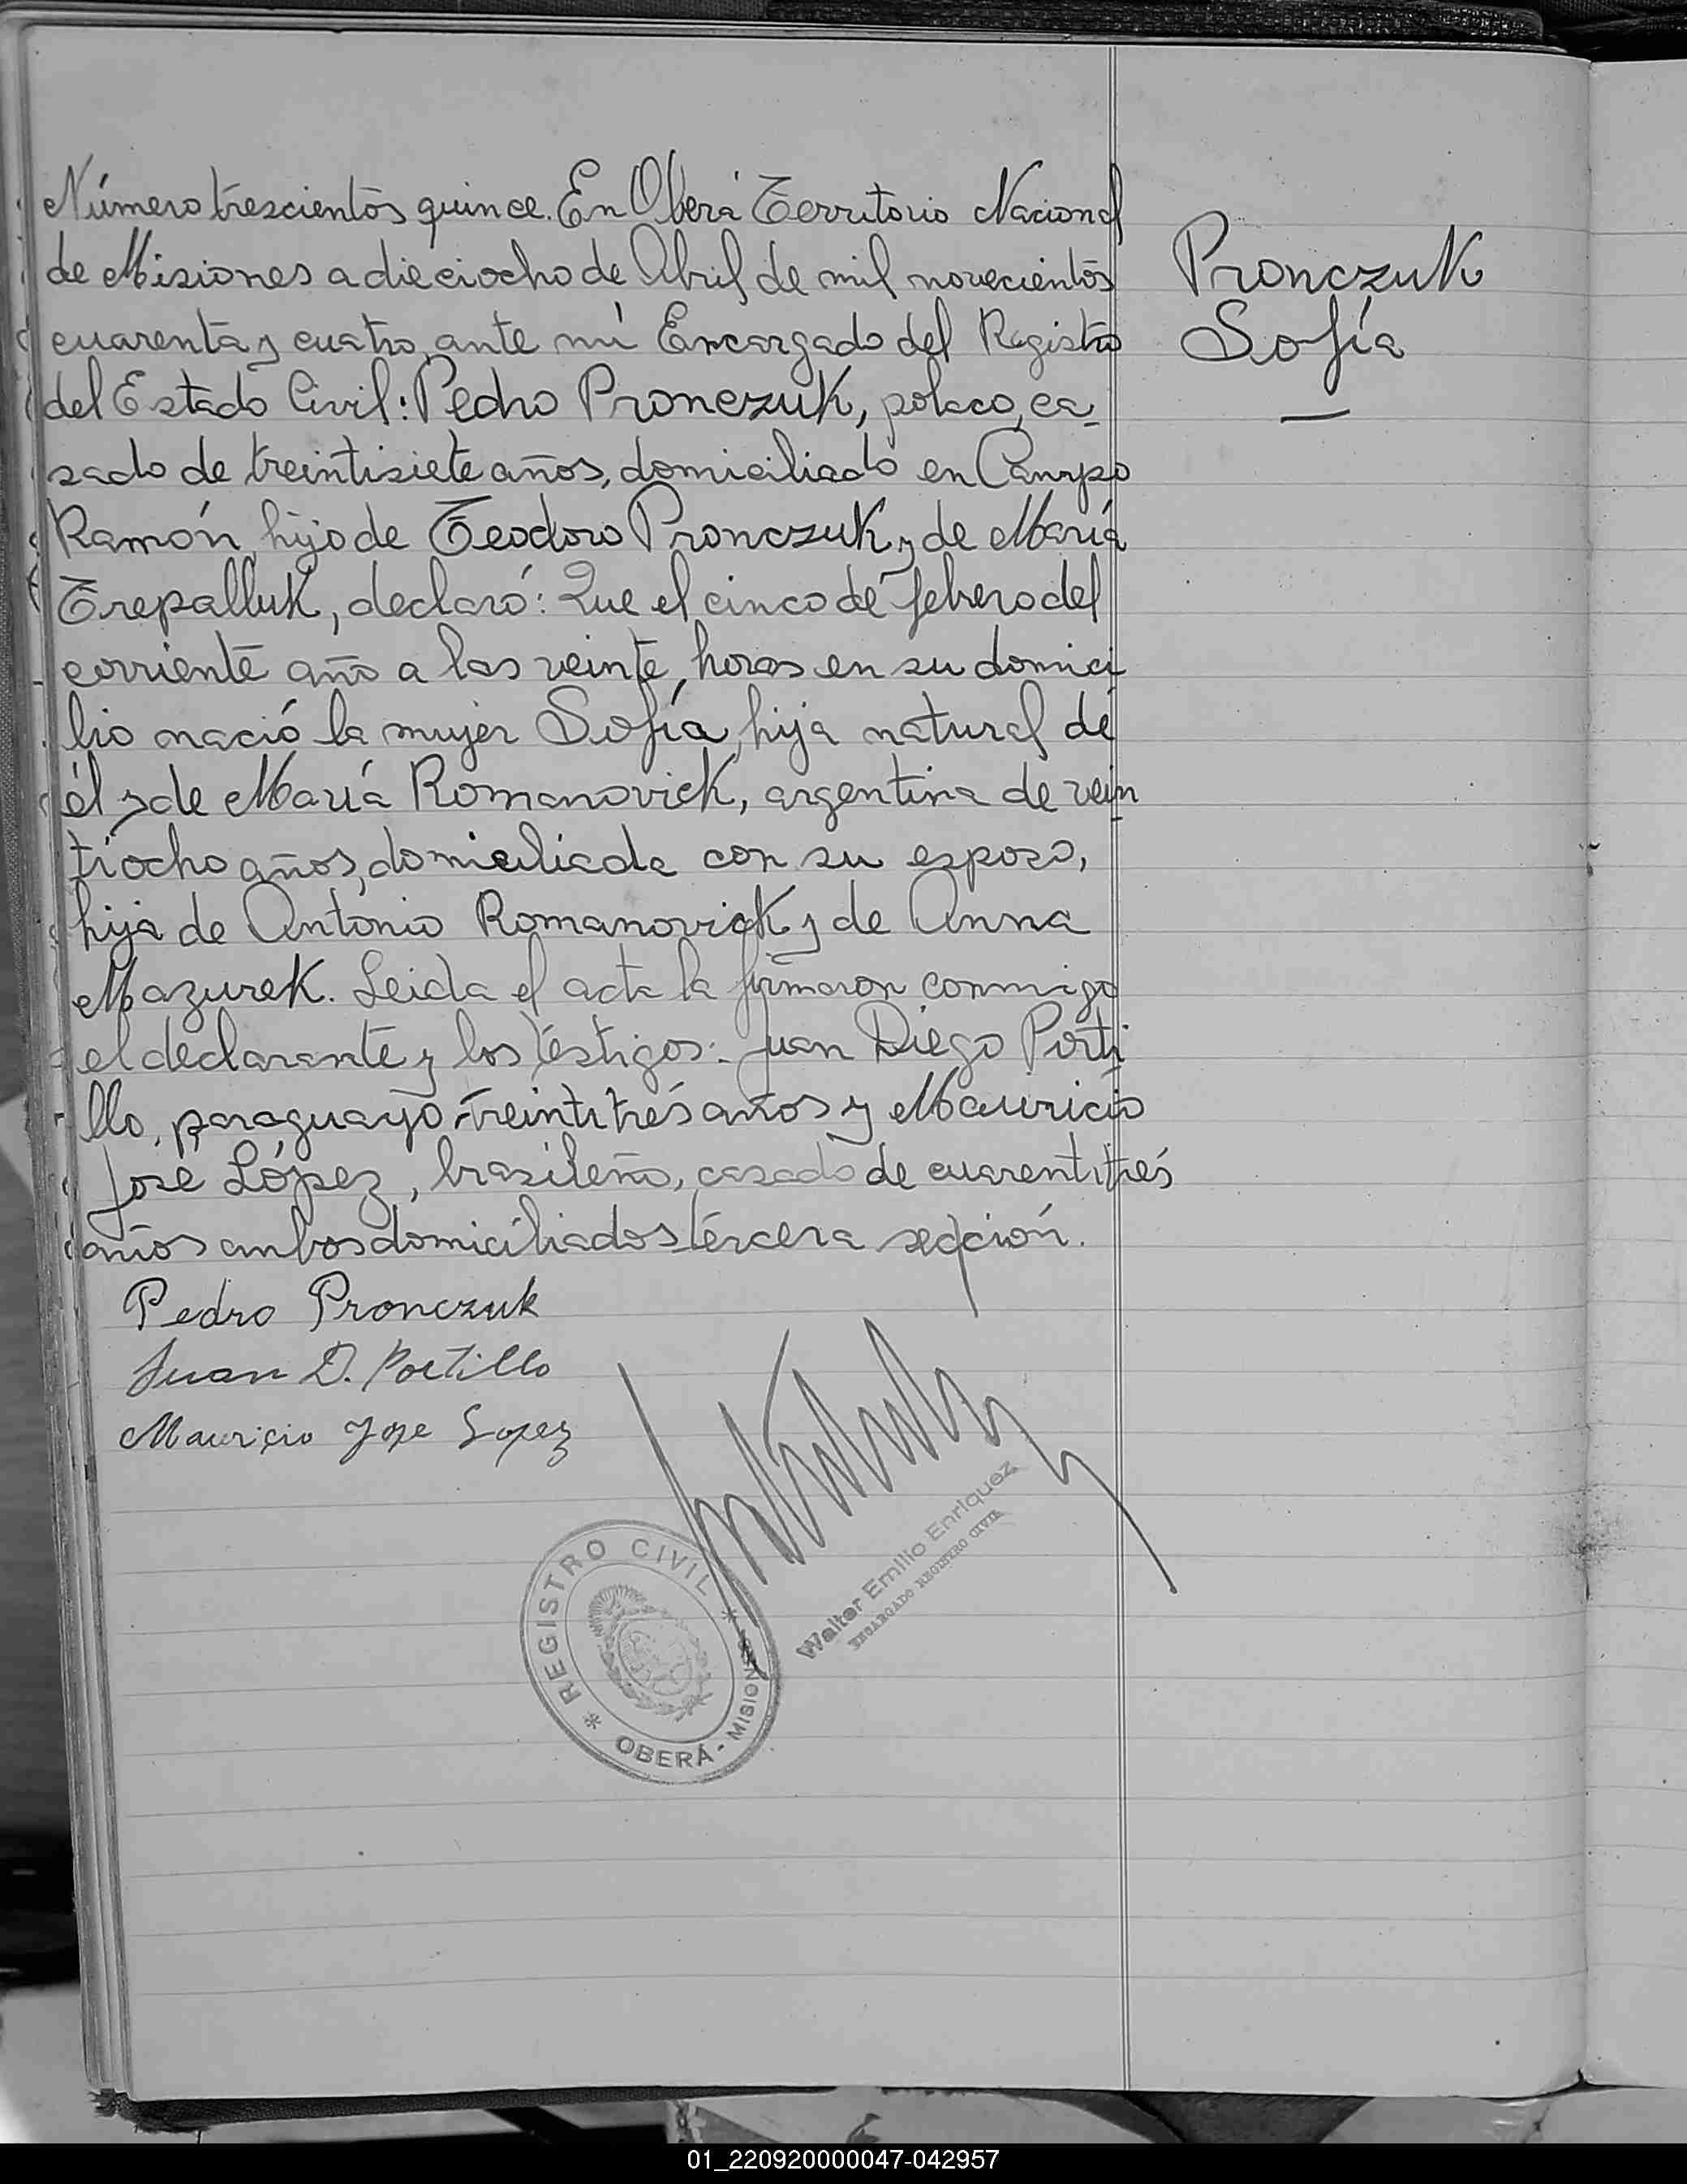 Número trescientos quince. En Oberá Territorio Nacional
de Misiones a dieciocho de Abril de mil novecientos
cuarenta y cuatro, ante mí Encargado del Registro
del Estado Civil: Pedro Pronczuk, polaco, ca-
sado de treintisiete años, domiciliado en Campo
Ramón, hijo de Teodoro Pronczuk y de María
Trepalluk, declaró: Que el cinco de febrero del
corriente año a las veinte horas en su domici
lio nació la mujer Sofía, hija natural de
él y de María Romanovick, argentina de vein
tiocho años, domiciliada con su esposo,
hija de Antonio Romanovick y de Anna
Mazurek. Leida el acta la firmaron conmigo
el declarante y los testigos: Juan Diego Porti
llo, paraguayo, treintitrés años y Mauricio
José López, brasileño, casado de cuarentitrés
años ambos domiciliados tercera sección.
Pedro Pronczuk
Juan D. Portillo
Mauricio Jose Lopez
Pronczuk
Sofía
Walter Emilio Enriquez
ENCARGADO REGISTRO CIVIL
* REGISTRO CIVIL *
OBERÁ - MISIONES
01_220920000047-042957